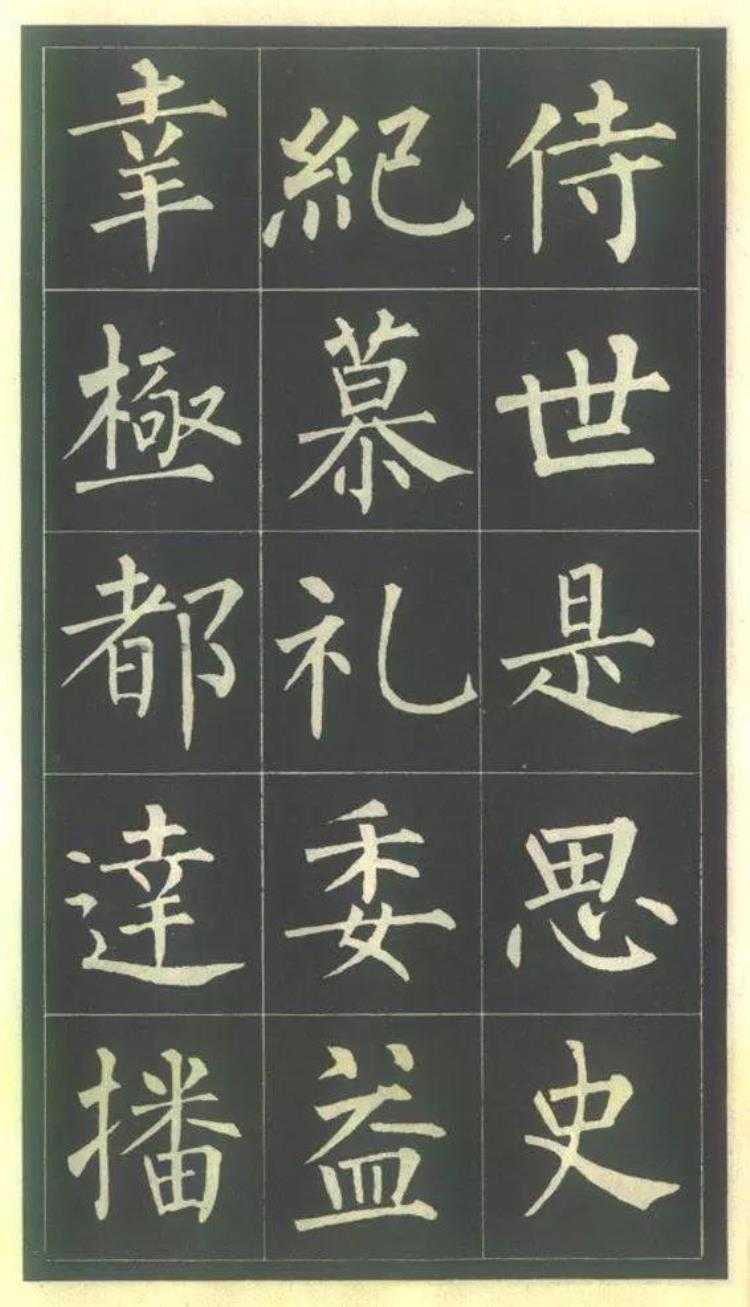 侍世是思史
紀慕礼委益
幸極都達播